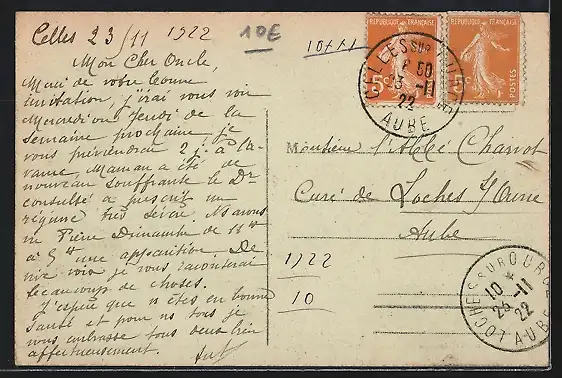 Celles 23/11 1922
10€
Mon Cher Oncle,
Merci de votre bonne
invitation, j'irai vous voir
Mercredi ou Jeudi de la
semaine prochaine, je
vous préviendrai 2 j. à l'a-
vance, Maman a été de
nouveau souffrante le Dr
consulté a prescrit un
régime très sévère. Ns avons
vu Pierre Dimanche de
à 5h une apparition. De
vive voix je vous raconterai
beaucoup de choses.
J'espère que vs êtes en bonne
santé et pour ns tous je
vous embrasse tous deux bien
affectueusement.
RÉPUBLIQUE FRANÇAISE
5c
POSTES
RÉPUBLIQUE FRANÇAISE
5c
POSTES
CELLES SUR OURCE
50
23 -11
22
AUBE
Monsieur l'Abbé Charvot
Curé de Loches s/Ource
Aube
1922
10
LOCHES SUR OURCE
10 *
23 -11
22
AUBE